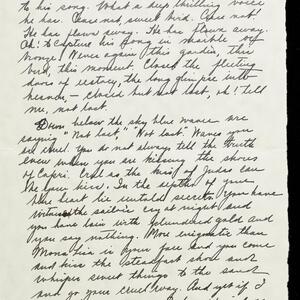 to his song. What a deep thrilling voice
he has. Cease not, sweet bird. Cease not!
He has flown away. He has flown away.
Oh! To capture his song in marble or
bronze. Never again this garden, this
bird, this moment. Closed the fleeting
doors of ecstacy, the long gin pee into
heaven, — closed but not lost, oh! Tell
me, not lost.
Down below the sky blue waves are
saying "Not lost," "Not lost." Waves you
are cruel. You do not always tell the truth
even when you are kissing the shores
of Capri. Cruel as the kiss of Judas can
be your kiss. In the depths of your
blue heart lie untold secrets. You have
witnessed the sailors cry at night and
you have lain with plundered gold and
you say nothing. More enigmatic than
Mona Lisa is your face and you come
and kiss the steadfast shore and
whisper sweet things to the sand
and go your cruel way. And yet if I